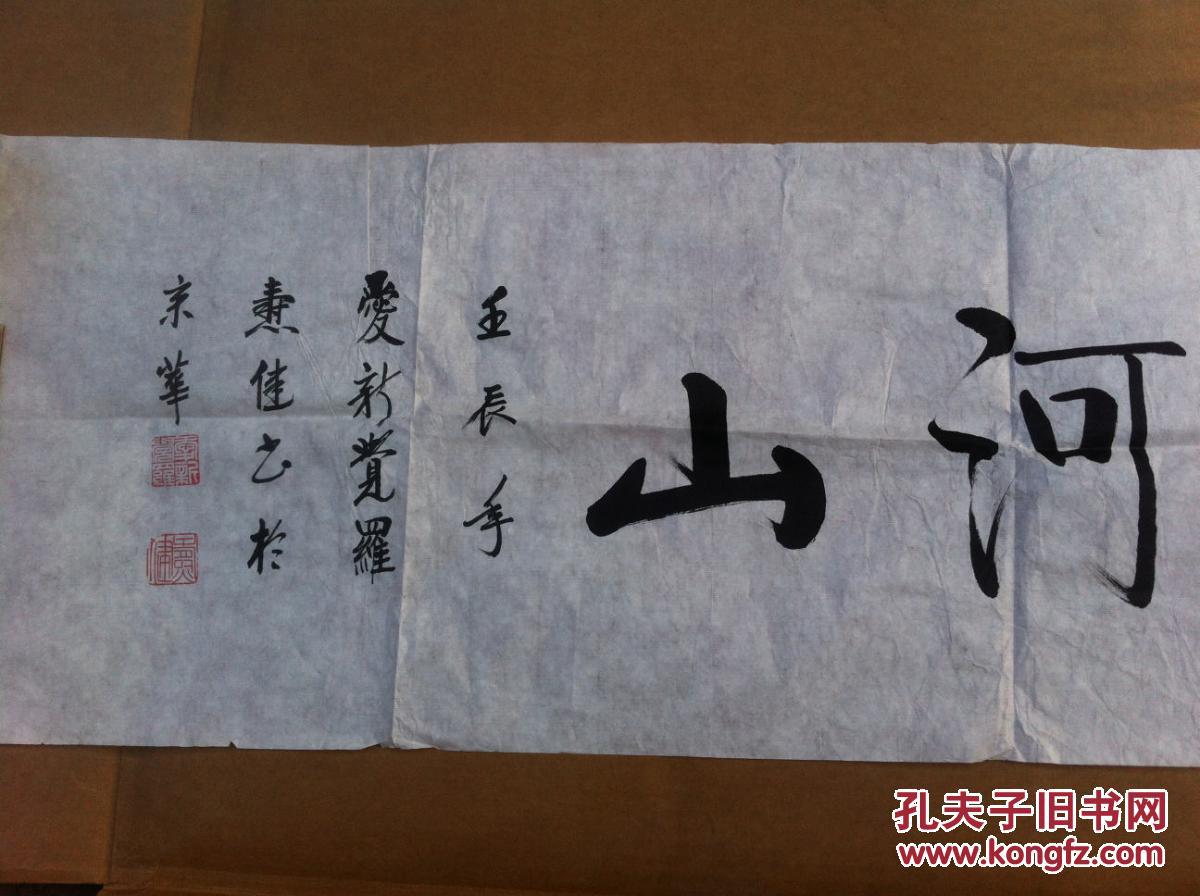 河
山
壬辰年
愛新覺羅
佳书於
京華
愛新覺羅
孔夫子旧书网
www.kongfz.com